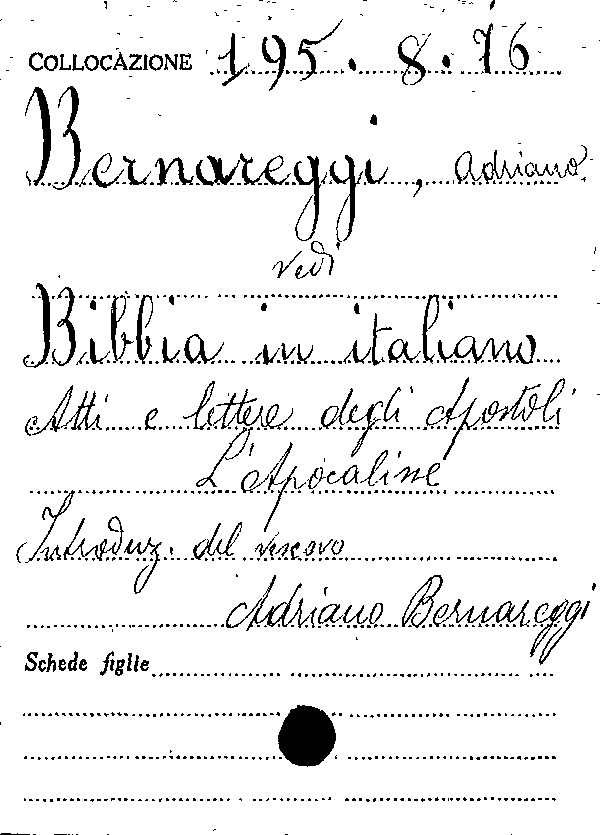 COLLOCAZIONE 195.8.76
Bernareggi, Adriano
vedi
Bibbia in italiano
Atti e lettere degli Apostoli
L'Apocalisse
Introduz. del vescovo
Adriano Bernareggi
Schede figlie